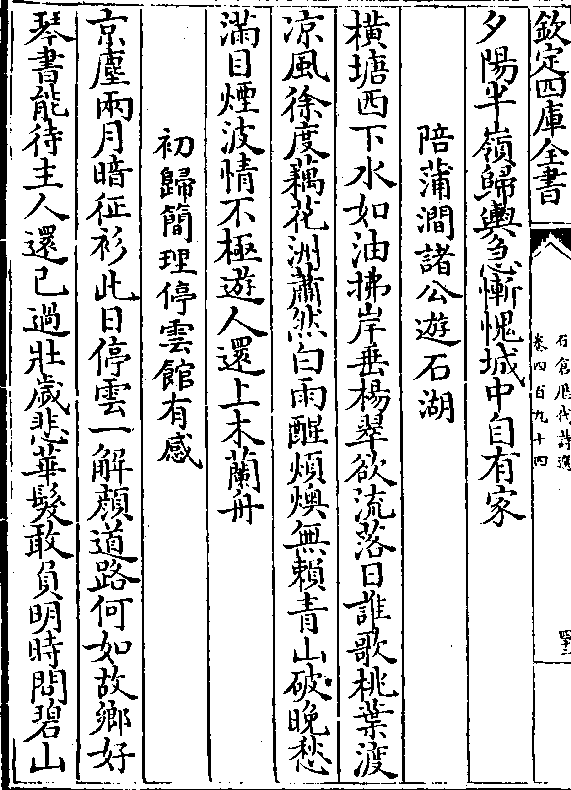 欽定四庫全書
石倉歷代詩選
卷四百九十四
四十三
夕陽半嶺歸輿急慚愧城中自有家
陪蒲澗諸公遊石湖
橫塘西下水如油拂岸垂楊翠欲流落日誰歌桃葉渡
凉風徐度藕花洲蕭然白雨醒煩燠無賴青山破晚愁
滿目煙波情不極遊人還上木蘭舟
初歸簡理停雲館有感
京塵兩月暗征衫此日停雲一解顔道路何如故鄉好
琴書能待主人還已過壯歲悲華髮敢負明時問碧山